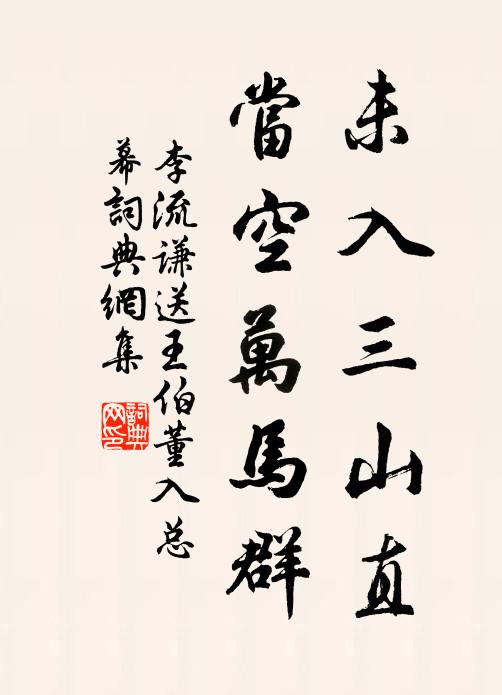 未入三山直
當空萬馬群
李流谦送王伯董入总
幕詞典網集
詞典网印